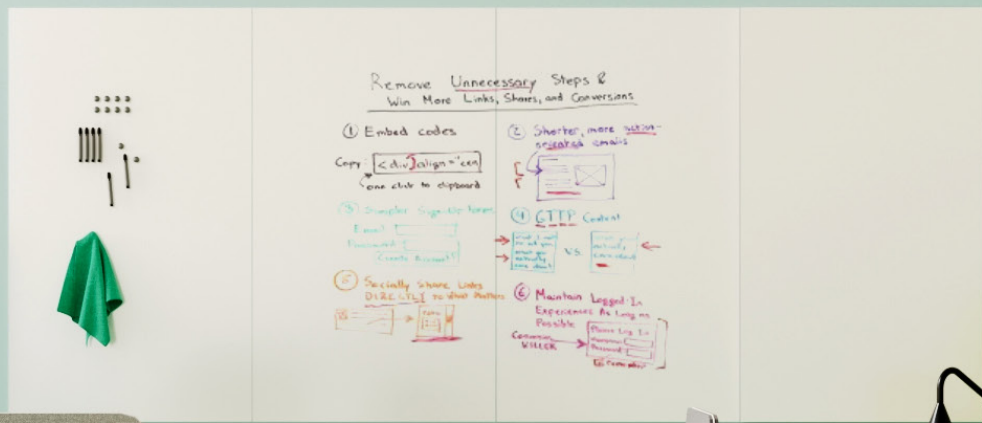 Remove Unnecessary Steps &
Win More Links, Shares, and Conversions
① Embed codes
Copy: <div align="cen
one click to clipboard
② Shorter, more action-
emails
③ Simpler Sign-Up forms
Email
Password
Create Account
④ GTTP Content
VS.
what you
actually
care about
⑤ Socially Share Links
DIRECTLY to what matters
⑥ Maintain Logged-In
Experiences As Long as
Possible
Conversion
KILLER
Please Log In
Password